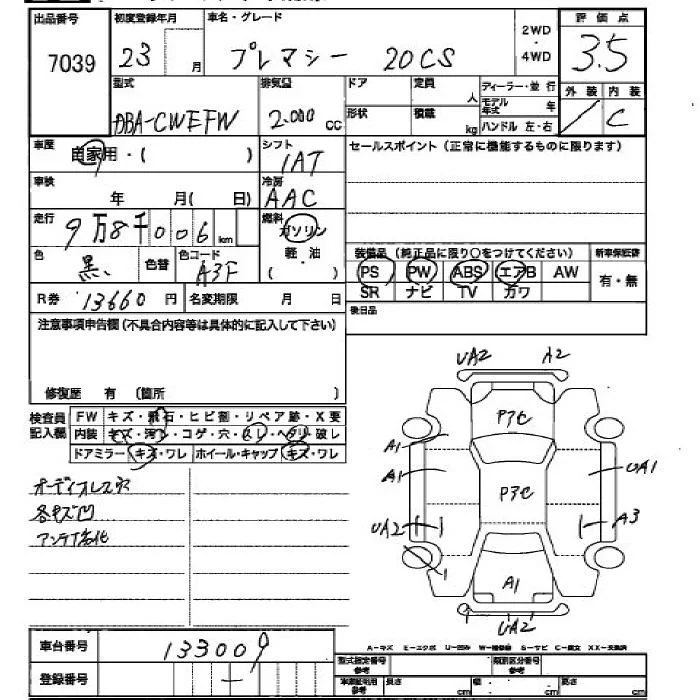 出品番号 初度登録年月 車名・グレード 2WD・4WD 評価点
7039 23 月 プレマシー 20CS 3.5
型式 排気量 ドア 定員 人 ディーラー・並行 外装 内装
DBA-CWEFW 2.000 cc 形状 積載 kg モデル年式 年 ハンドル 左・右 / C
車歴 自家用・( ) シフト 1AT セールスポイント(正常に機能するものに限ります)
車検 年 月( 日) 冷房 AAC
走行 9万8千006km 燃料 ガソリン 軽・油 ( ・ )
色 黒 色替 色コード A3F
装備品(純正品に限り○をつけてください) 新車保証書
PS PW ABS エアB AW 有・無
SR ナビ TV カワ
R券 13660円 名変期限 月 日
後日品
注意事項申告欄(不具合内容等は具体的に記入して下さい)
修復歴 有 (箇所 )
検査員記入欄
FW キズ・飛石・ヒビ割・リペア跡・X要
内装 キズ・汚レ・コゲ・穴・スレ・ヘタリ・破レ
ドアミラー キズ・ワレ ホイール・キャップ キズ・ワレ
オーディオレス穴
各キズ凹
アンテナ劣化
UA2 A2
P7C
A1
A1 P7C UA1
UA2 A3
1
A1
UA2
A-キズ E-エクボ U-凹み W-補修跡 S-サビ C-腐食 XX-交換済
車台番号 133009
登録番号 —
型式指定番号 参考 類別区分番号 参考
車庫証明用 参考 長さ cm 幅 cm 高さ cm